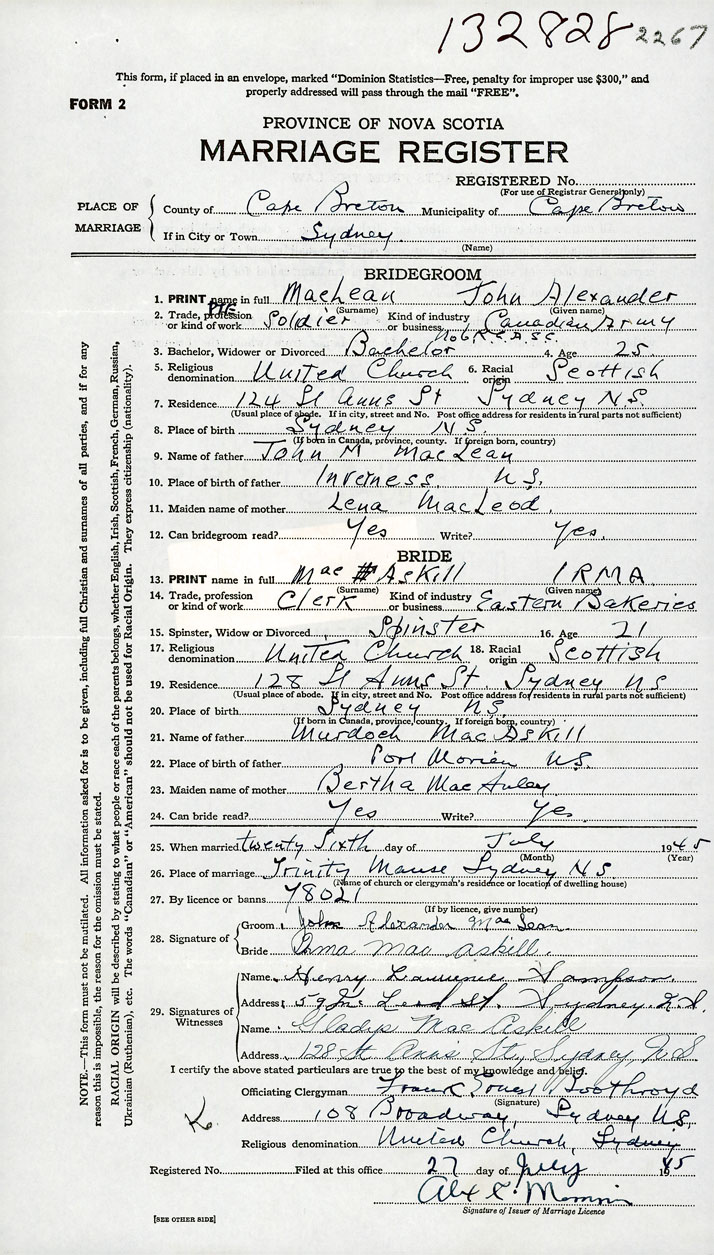 132828 2267
This form, if placed in an envelope, marked "Dominion Statistics—Free, penalty for improper use $300," and
properly addressed will pass through the mail "FREE".
FORM 2
PROVINCE OF NOVA SCOTIA
MARRIAGE REGISTER
REGISTERED No.
(For use of Registrar General only)
PLACE OF MARRIAGE
County of Cape Breton Municipality of Cape Breton
If in City or Town Sydney.
(Name)
BRIDEGROOM
1. PRINT name in full MacLean John Alexander
(Surname) (Given name)
Pte
2. Trade, profession or kind of work Soldier Kind of industry or business Canadian Army
No 6 R.C.A.S.C.
3. Bachelor, Widower or Divorced Bachelor 4. Age 25.
5. Religious denomination United Church 6. Racial origin Scottish
7. Residence 124 St Anns St Sydney N.S.
(Usual place of abode. If in city, street and No. Post office address for residents in rural parts not sufficient)
8. Place of birth Sydney N.S.
(If born in Canada, province, county. If foreign born, country)
9. Name of father John M MacLean
10. Place of birth of father Inverness N.S.
11. Maiden name of mother Lena MacLeod.
12. Can bridegroom read? Yes Write? Yes.
BRIDE
13. PRINT name in full Mac Askill IRMA
(Surname) (Given name)
14. Trade, profession or kind of work Clerk Kind of industry or business Eastern Bakeries
15. Spinster, Widow or Divorced Spinster 16. Age 21
17. Religious denomination United Church 18. Racial origin Scottish
19. Residence 128 St Anns St Sydney NS
(Usual place of abode. If in city, street and No. Post office address for residents in rural parts not sufficient)
20. Place of birth Sydney N.S.
(If born in Canada, province, county. If foreign born, country)
21. Name of father Murdoch MacAskill
22. Place of birth of father Port Morien N.S.
23. Maiden name of mother Bertha MacAuley
24. Can bride read? Yes Write? Yes
25. When married twenty Sixth day of July 1945
(Month) (Year)
26. Place of marriage Trinity Manse Sydney N S
(Name of church or clergyman's residence or location of dwelling house)
27. By licence or banns 78021
(If by licence, give number)
28. Signature of
Groom John Alexander MacLean
Bride Irma Mac Askill.
29. Signatures of Witnesses
Name Henry Lawrence Sampson
Address 59 St. Sydney, N.S.
Name Gladys Mac Askill
Address 128 St Ann's St, Sydney, N.S
I certify the above stated particulars are true to the best of my knowledge and belief.
Officiating Clergyman Frank Ernest Boothroyd
(Signature)
Address 108 Broadway, Sydney N.S.
Religious denomination United Church, Sydney
Registered No. Filed at this office 27 day of July 1945
Signature of Issuer of Marriage Licence
[SEE OTHER SIDE]
NOTE.—This form must not be mutilated. All information asked for is to be given, including full Christian and surnames of all parties, and if for any
reason this is impossible, the reason for the omission must be stated.
RACIAL ORIGIN will be described by stating to what people or race each of the parents belongs, whether English, Irish, Scottish, French, German, Russian,
Ukrainian (Ruthenian), etc. The words "Canadian" or "American" should not be used for Racial Origin. They express citizenship (nationality).